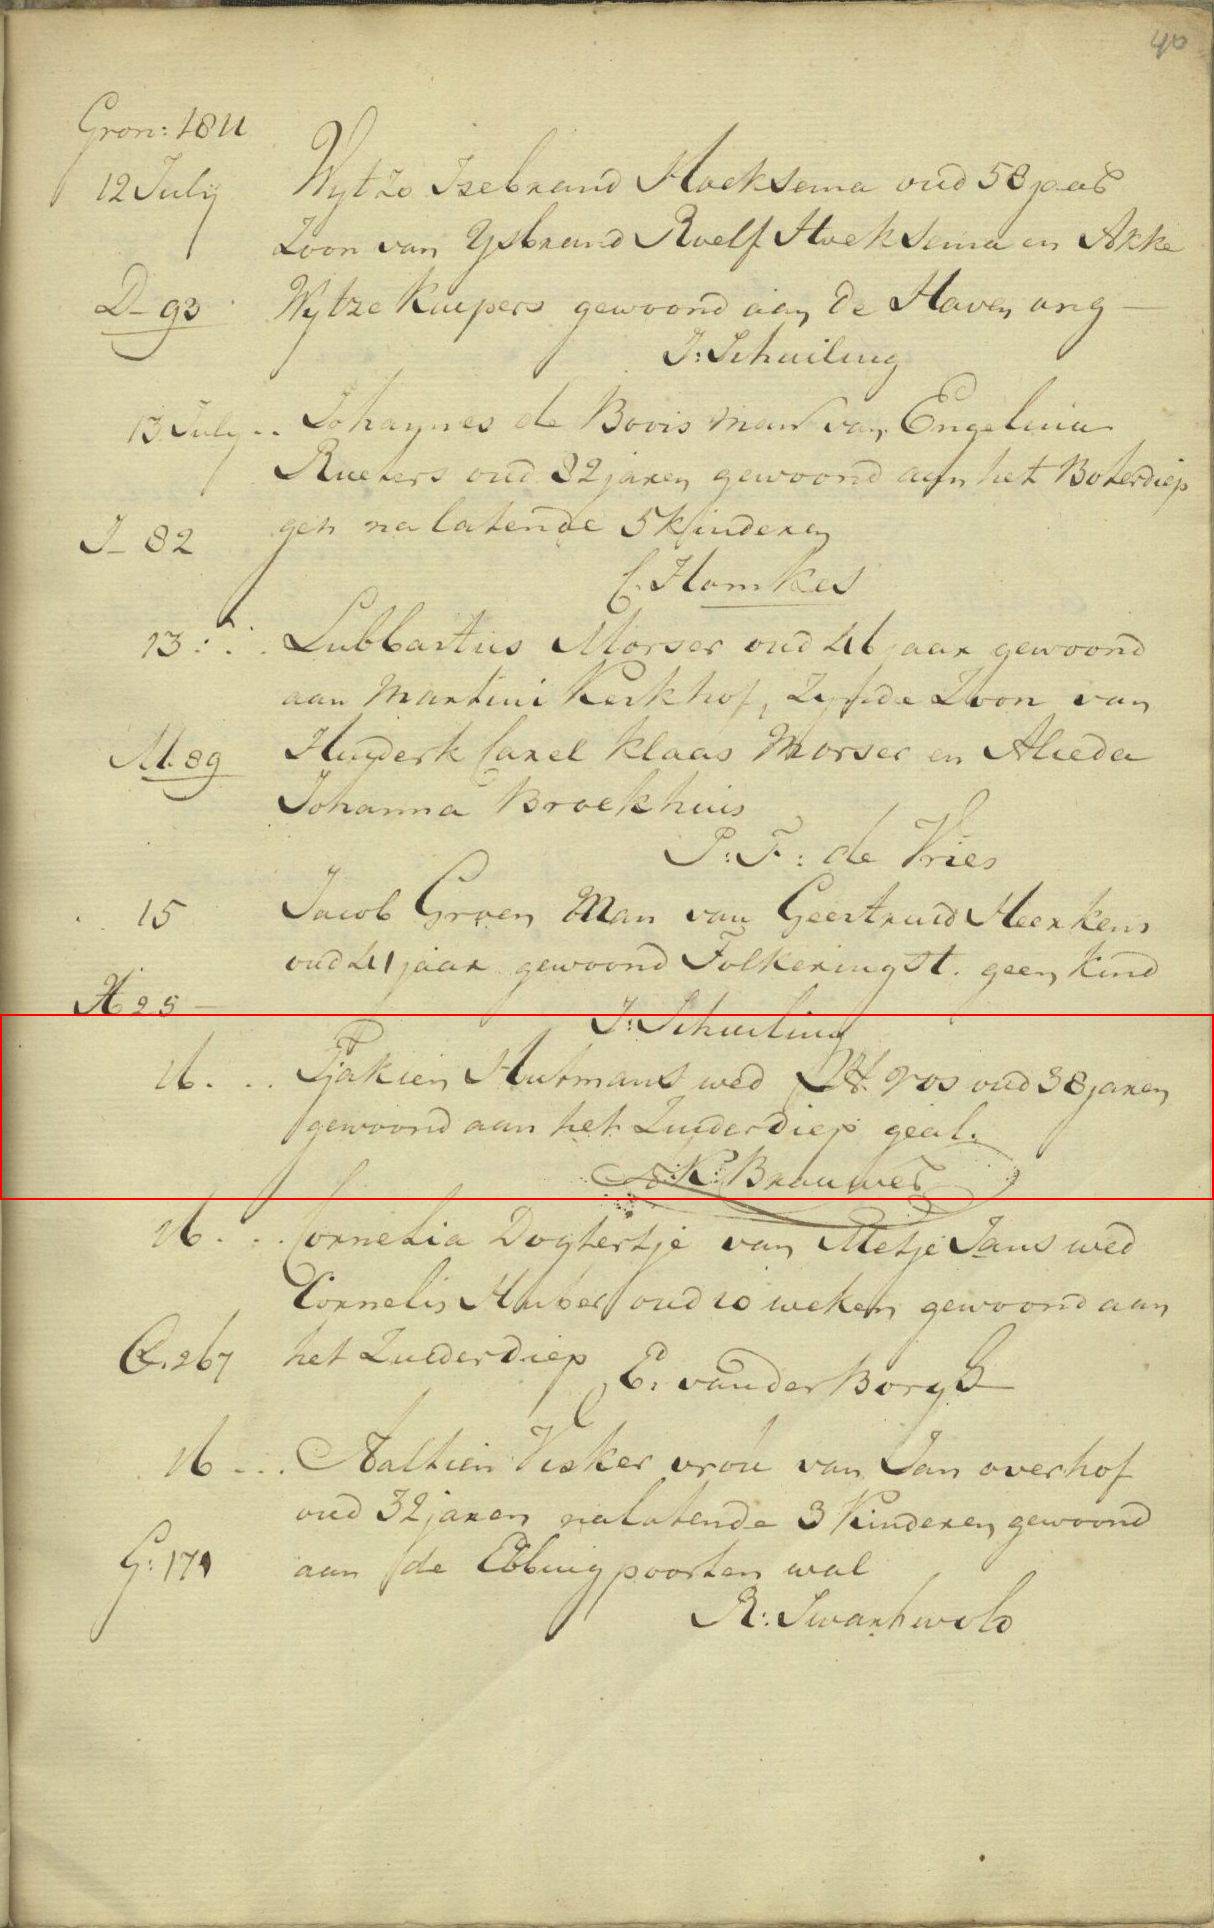 40
Gron: 1811
12 July Wytze Isebrand Hoeksema oud 58 jaar
Zoon van Ysbrand Roelf Hoeksema en Akke
D_ 93 Wytze Kuipers gewoond aan de Haven ong —
J: Schuiling
13 July .. Johannes de Bovis man van Engelina
Rueters oud 32 jaren gewoond aan het Boterdiep
J_ 82 gen nalatende 5 Kinderen
C. Homkes
13 : . . Lubbartus Morser oud 46 jaar gewoond
aan Martini Kerkhof, Zynde Zoon van
M. 89 Hinderk Carel Klaas Morser en Alieda
Johanna Broekhuis
P: F: de Vries
15 Jacob Groen Man van Geertruid Heerkens
oud 41 jaar gewoond Folkeringst. geen Kind
H 25 —
J: Schuiling
16 . . . Tjakien Hutmans wed W. Vos oud 38 jaren
gewoond aan het Zuiderdiep geal.
K: Brauwer
16 . . . Cornelia Dogtertje van Metje Jans wed
Cornelis Huber oud 10 weken gewoond aan
Q. 267 het Zuiderdiep
E. van der Borgh
16 . . . Aaltien Visker vrou van Jan overhof
oud 32 jaren nalatende 3 Kinderen gewoond
G: 171 aan de Ebbingpoorten wal
R: Swartwolt